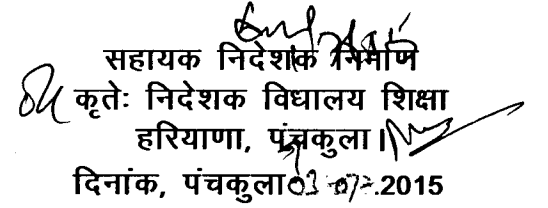 सहायक निदेशक निर्माण
कृतेः निदेशक विधालय शिक्षा
हरियाणा, पंचकुला।
दिनांक, पंचकुला 03-07-.2015